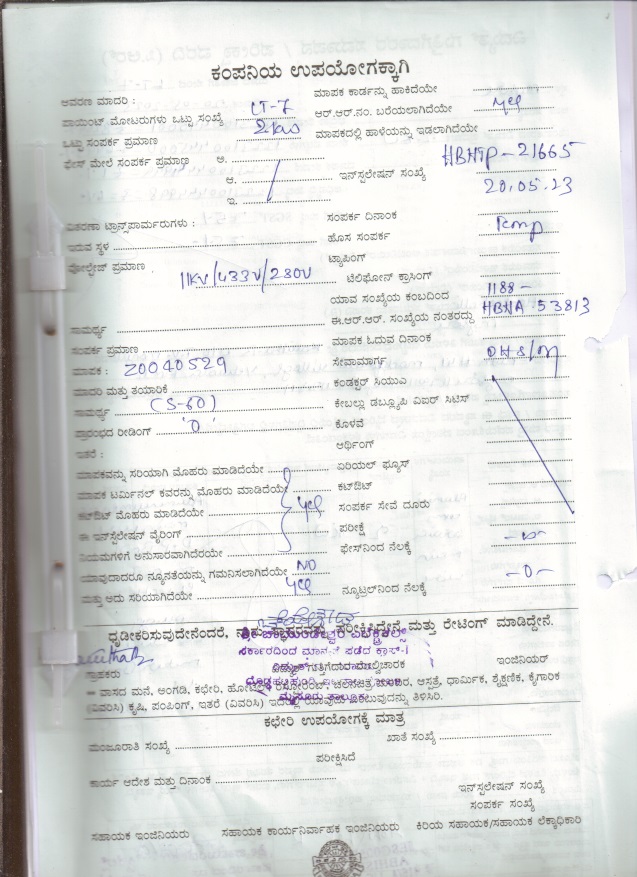 ಕಂಪನಿಯ ಉಪಯೋಗಕ್ಕಾಗಿ
ಆವರಣ ಮಾದರಿ : LT-7 ಮಾಪಕ ಕಾರ್ಡನ್ನು ಹಾಕಿದೆಯೇ
ಪಾಯಿಂಟ್ ಮೋಟರುಗಳು ಒಟ್ಟು ಸಂಖ್ಯೆ ಆರ್.ಆರ್.ನಂ. ಬರೆಯಲಾಗಿದೆಯೇ yes
ಒಟ್ಟು ಸಂಪರ್ಕ ಪ್ರಮಾಣ 2kw ಮಾಪಕದಲ್ಲಿ ಹಾಳೆಯನ್ನು ಇಡಲಾಗಿದೆಯೇ
ಫೇಸ್ ಮೇಲೆ ಸಂಪರ್ಕ ಪ್ರಮಾಣ ಅ.
ಆ. ಇನ್‌ಸ್ಪಲೇಷನ್ ಸಂಖ್ಯೆ HBHTP-21665
ಇ. 20.05.23
ವಿತರಣಾ ಟ್ರಾನ್ಸ್‌ಪಾರ್ಮರುಗಳು : ಸಂಪರ್ಕ ದಿನಾಂಕ
ಇರುವ ಸ್ಥಳ ಹೊಸ ಸಂಪರ್ಕ
ವೋಲ್ಟೇಜ್ ಪ್ರಮಾಣ 11KV/433V/230V ಟ್ಯಾಪಿಂಗ್
ಟೆಲಿಫೋನ್ ಕ್ರಾಸಿಂಗ್
ಯಾವ ಸಂಖ್ಯೆಯ ಕಂಬದಿಂದ 1188-
ಸಾಮರ್ಥ್ಯ ಈ.ಆರ್.ಆರ್. ಸಂಖ್ಯೆಯ ನಂತರದ್ದು HBHA 53813
ಸಂಪರ್ಕ ಪ್ರಮಾಣ ಮಾಪಕ ಓದುವ ದಿನಾಂಕ
ಮಾಪಕ : Z0040529 ಸೇವಾಮಾರ್ಗ
ಮಾದರಿ ಮತ್ತು ತಯಾರಿಕೆ ಕಂಡಕ್ಟರ್ ಸಿಯುವಿ
ಸಾಮರ್ಥ್ಯ (5-60) ಕೇಬಲ್ಲು ಡಬ್ಲ್ಯೂಪಿ ವಿಐರ್ ಸಿಟಿಸ್
ಪ್ರಾರಂಭದ ರೀಡಿಂಗ್ '0' ಕೊಳವೆ
ಇತರೆ : ಅರ್ಥಿಂಗ್
ಮಾಪಕವನ್ನು ಸರಿಯಾಗಿ ಮೊಹರು ಮಾಡಿದೆಯೇ ಏರಿಯಲ್ ಫ್ಯೂಸ್
ಮಾಪಕ ಟರ್ಮಿನಲ್ ಕವರನ್ನು ಮೊಹರು ಮಾಡಿದೆಯೇ ಕಟ್‌ಔಟ್
ಕಟ್‌ಔಟ್ ಮೊಹರು ಮಾಡಿದೆಯೇ yes ಸಂಪರ್ಕ ಸೇವೆ ದೂರು
ಈ ಇನ್‌ಸ್ಪೆಲೇಷನ್ ವೈರಿಂಗ್ ಪರೀಕ್ಷೆ
ನಿಯಮಗಳಿಗೆ ಅನುಸಾರವಾಗಿದೆರಯೇ ಫೇಸ್‌ನಿಂದ ನೆಲಕ್ಕೆ
ಯಾವುದಾದರೂ ನ್ಯೂನತೆಯನ್ನು ಗಮನಿಸಲಾಗಿದೆಯೇ NO
ಮತ್ತು ಅದು ಸರಿಯಾಗಿದೆಯೇ yes ನ್ಯೂಟ್ರಲ್‌ನಿಂದ ನೆಲಕ್ಕೆ -0-
ಧೃಡೀಕರಿಸುವುದೇನೆಂದರೆ, ಪರೀಕ್ಷಿಸಿದ್ದೇನೆ ಮತ್ತು ರೇಟಿಂಗ್ ಮಾಡಿದ್ದೇನೆ.
ಸರ್ಕಾರದಿಂದ ಮಾನ್ಯತೆ ಪಡೆದ ಕ್ಲಾಸ್-I
ಗ್ರಾಹಕರು ಇಂಜಿನಿಯರ್
ಮೈಸೂರು ತಾಲೂಕು
ವಾಸದ ಮನೆ, ಅಂಗಡಿ, ಕಛೇರಿ, ಆಸ್ಪತ್ರೆ, ಧಾರ್ಮಿಕ, ಶೈಕ್ಷಣಿಕ, ಕೈಗಾರಿಕ
(ವಿವರಿಸಿ) ಕೃಷಿ, ಪಂಪಿಂಗ್, ಇತರೆ (ವಿವರಿಸಿ) ತಿಳಿಸಿರಿ.
ಕಛೇರಿ ಉಪಯೋಗಕ್ಕೆ ಮಾತ್ರ
ಮಂಜೂರಾತಿ ಸಂಖ್ಯೆ ಖಾತೆ ಸಂಖ್ಯೆ
ಪರೀಕ್ಷಿಸಿದೆ
ಕಾರ್ಯ ಆದೇಶ ಮತ್ತು ದಿನಾಂಕ
ಇನ್‌ಸ್ಪಲೇಷನ್ ಸಂಖ್ಯೆ
ಸಂಪರ್ಕ ಸಂಖ್ಯೆ
ಸಹಾಯಕ ಇಂಜಿನಿಯರು ಸಹಾಯಕ ಕಾರ್ಯನಿರ್ವಾಹಕ ಇಂಜಿನಿಯರು ಕಿರಿಯ ಸಹಾಯಕ/ಸಹಾಯಕ ಲೆಕ್ಕಾಧಿಕಾರಿ